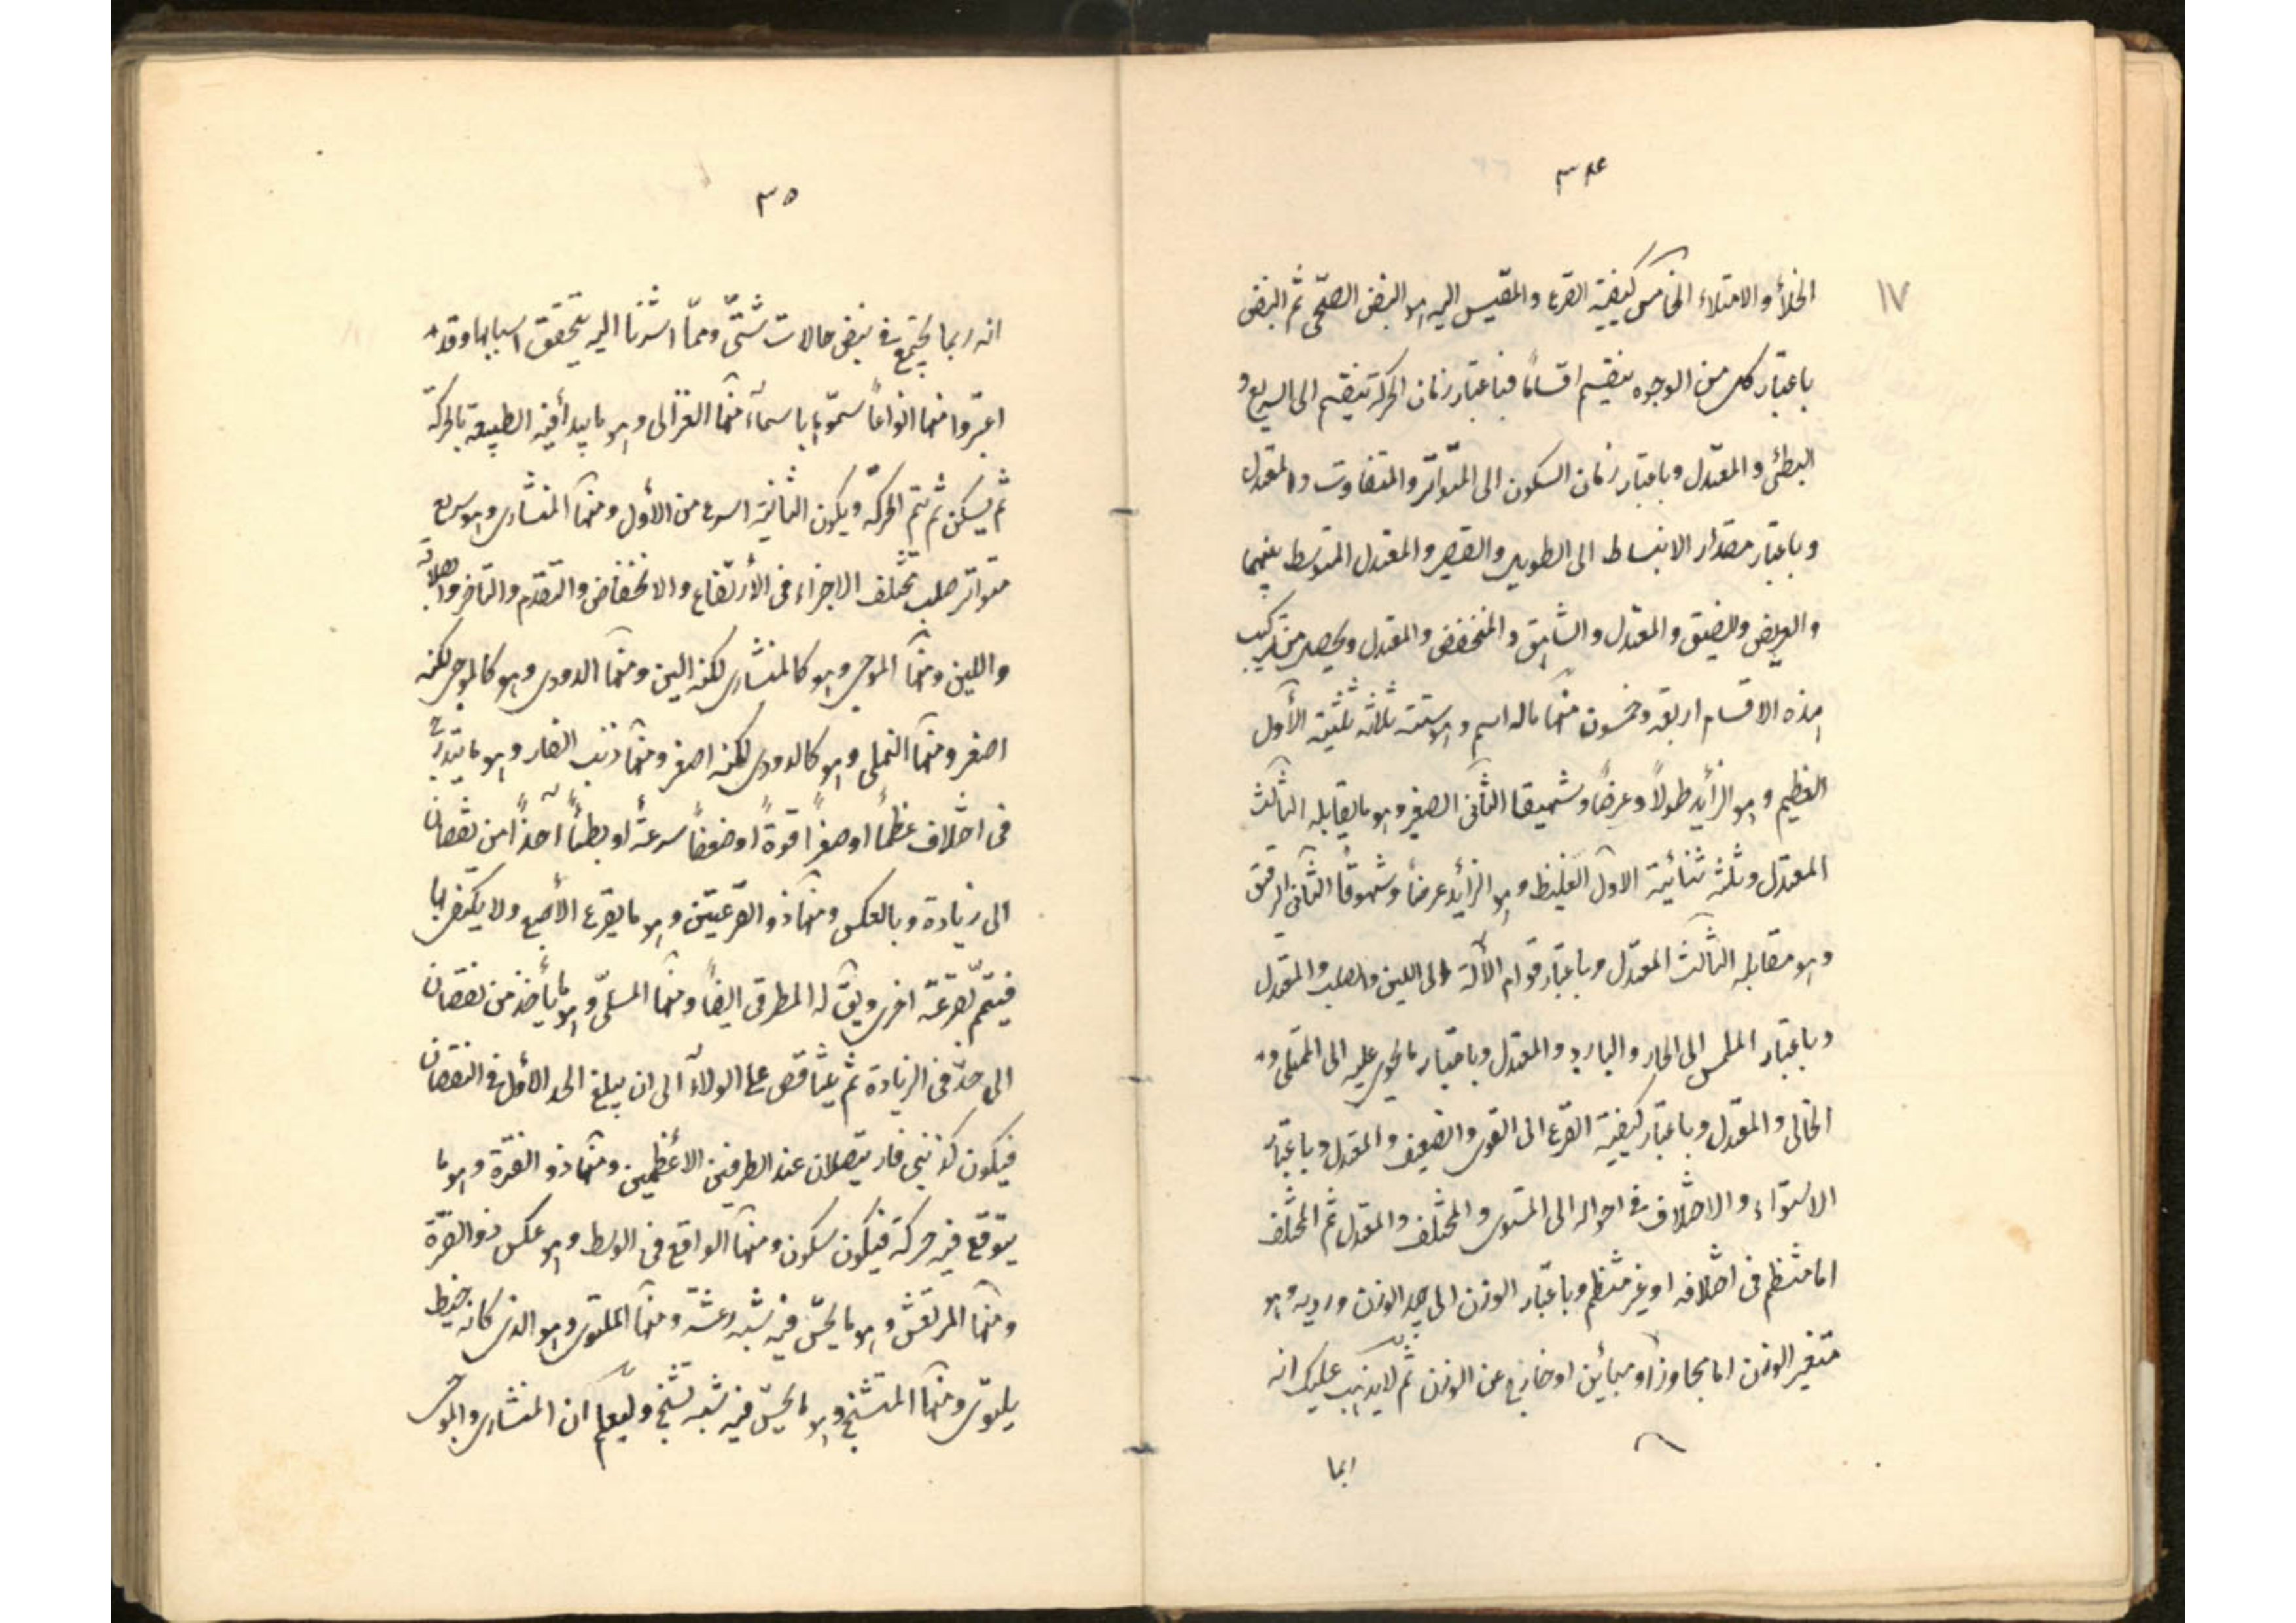 ٣٤
١٧
الخلأ والامتلاء الخامس كيفية القرع والمقيس اليه هو النبض الصحّى ثم النبض
باعتبار كل من الوجوه ينقسم اقسامًا فباعتبار زمان الحركة ينقسم الى السريع و
البطئ والمعتدل وباعتبار زمان السكون الى المتواتر والمتفاوت والمعتدل
وباعتبار مقدار الانبساط الى الطويل والقصير والمعتدل المتوسط بينهما
والعريض والضيق والمعتدل والشاهق والمنخفض والمعتدل ويحصل من تركيب
هذه الاقسام اربعة وخمسون منها ماله اسم وهو ستة ثلاثة ثلثية الأول
العظيم وهو الزأيد طولاً وعرضًا وشهيقا الثانى الصغير وهو مايقابله الثالث
المعتدل وثلثة ثنائية الاول الغليظ وهو الزأيد عرضًا وشهوقًا الثانى الرقيق
وهو مقابله الثالث المعتدل وباعتبار قوام الألة الى اللين والصلب والمعتدل
وباعتبار الملمس الى الحار والبارد والمعتدل وباعتبار مايحوى عليه الى الممتلى و
الخالى والمعتدل وباعتبار كيفية القرع الى القوى والضعيف والمعتدل وباعتبار
الاستواء والاختلاف فى احواله الى المستوى والمختلف والمعتدل ثم المختلف
اما منتظم فى اختلافه او غير منتظم وباعتبار الوزن الى جيد الوزن ورديه وهو
متغير الوزن اما مجاوز او مبأين او خارج عن الوزن ثم لايذهب عليك انه
٣٥
انه ربما يجتمع فى نبض حالات شتّى وممّا اشرنا اليه يتحقق اسبابها وقد
اعتبروا منها انواعًا سمّوها باسمآء منها الغزالى وهو مايبدأ فيه الطبيعة بالحركة
ثم يسكن ثم تتم الحركة ويكون الثانية اسرع من الأول ومنها المنشارى وهو سريع
متواتر صلب مختلف الاجزاء فى الأرتفاع والانخفاض والتقدم والتاخر والصلابة
واللين ومنها الموجى وهو كالمنشارى لكنه الين ومنها الدودى وهو كالموجى لكنه
اصغر ومنها النملى وهو كالدودى لكنه اصغر ومنها ذنب الفار وهو مايتدرّج
فى اختلاف عظمًا او صغرًا قوةً او ضعفًا سرعةً او بطئًا آخذًا من نقصان
الى زيادة وبالعكس ومنها ذو القرعتين وهو مايقرع الأصبع ولا يكتفى بها
فيتمم بقرعة اخرى ويق له المطرقى ايضًا ومنها المسلّى وهو مايأخذ من نقصان
الى حدّ فى الزيادة ثم يتناقص على الولآء الى ان يبلغ الحد الأول فى النقصان
فيكون كذنبى فار يتصلان عند الطرفين الأعظمين ومنها ذو الفترة وهو ما
يتوقع فيه حركة فيكون سكون ومنها الواقع فى الوسط وهو عكس ذو الفترة
ومنها المرتعش وهو مايحسّ فيه شبه رعشة ومنها الملتوى وهو الذى كانه خيط
يلتوى ومنها المتشنج وهو مايحسّ فيه شبه تشنج وليعلم ان المنشارى والموجى